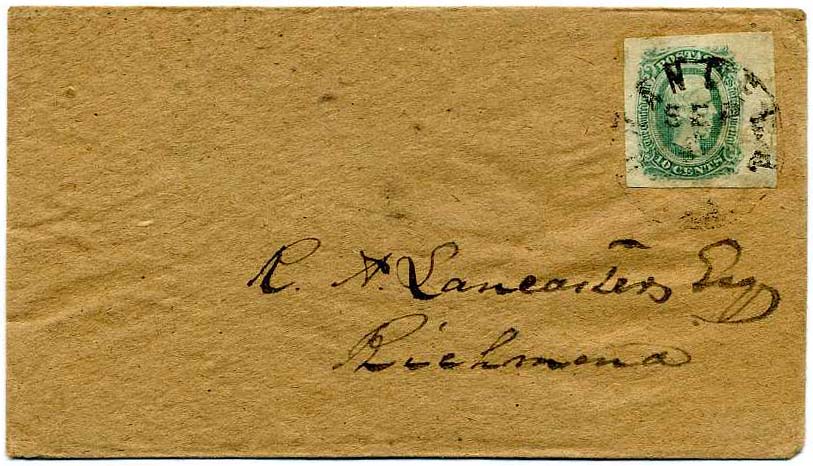 POSTAGE
10 CENTS
R. A. Lancaster Esq
Richmond